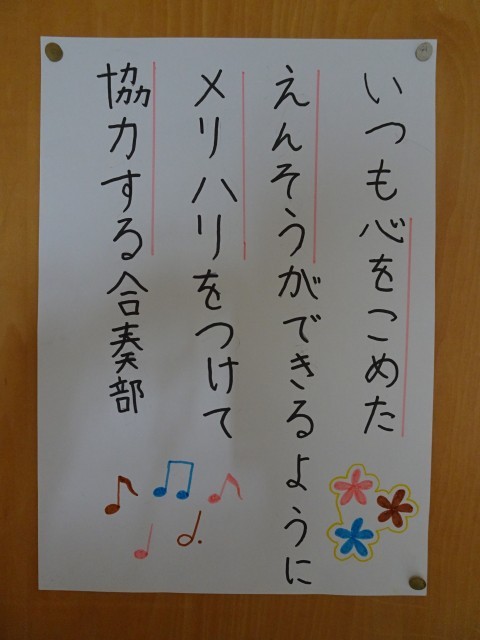 いつも心をこめた
えんそうができるように
メリハリをつけて
協力する合奏部